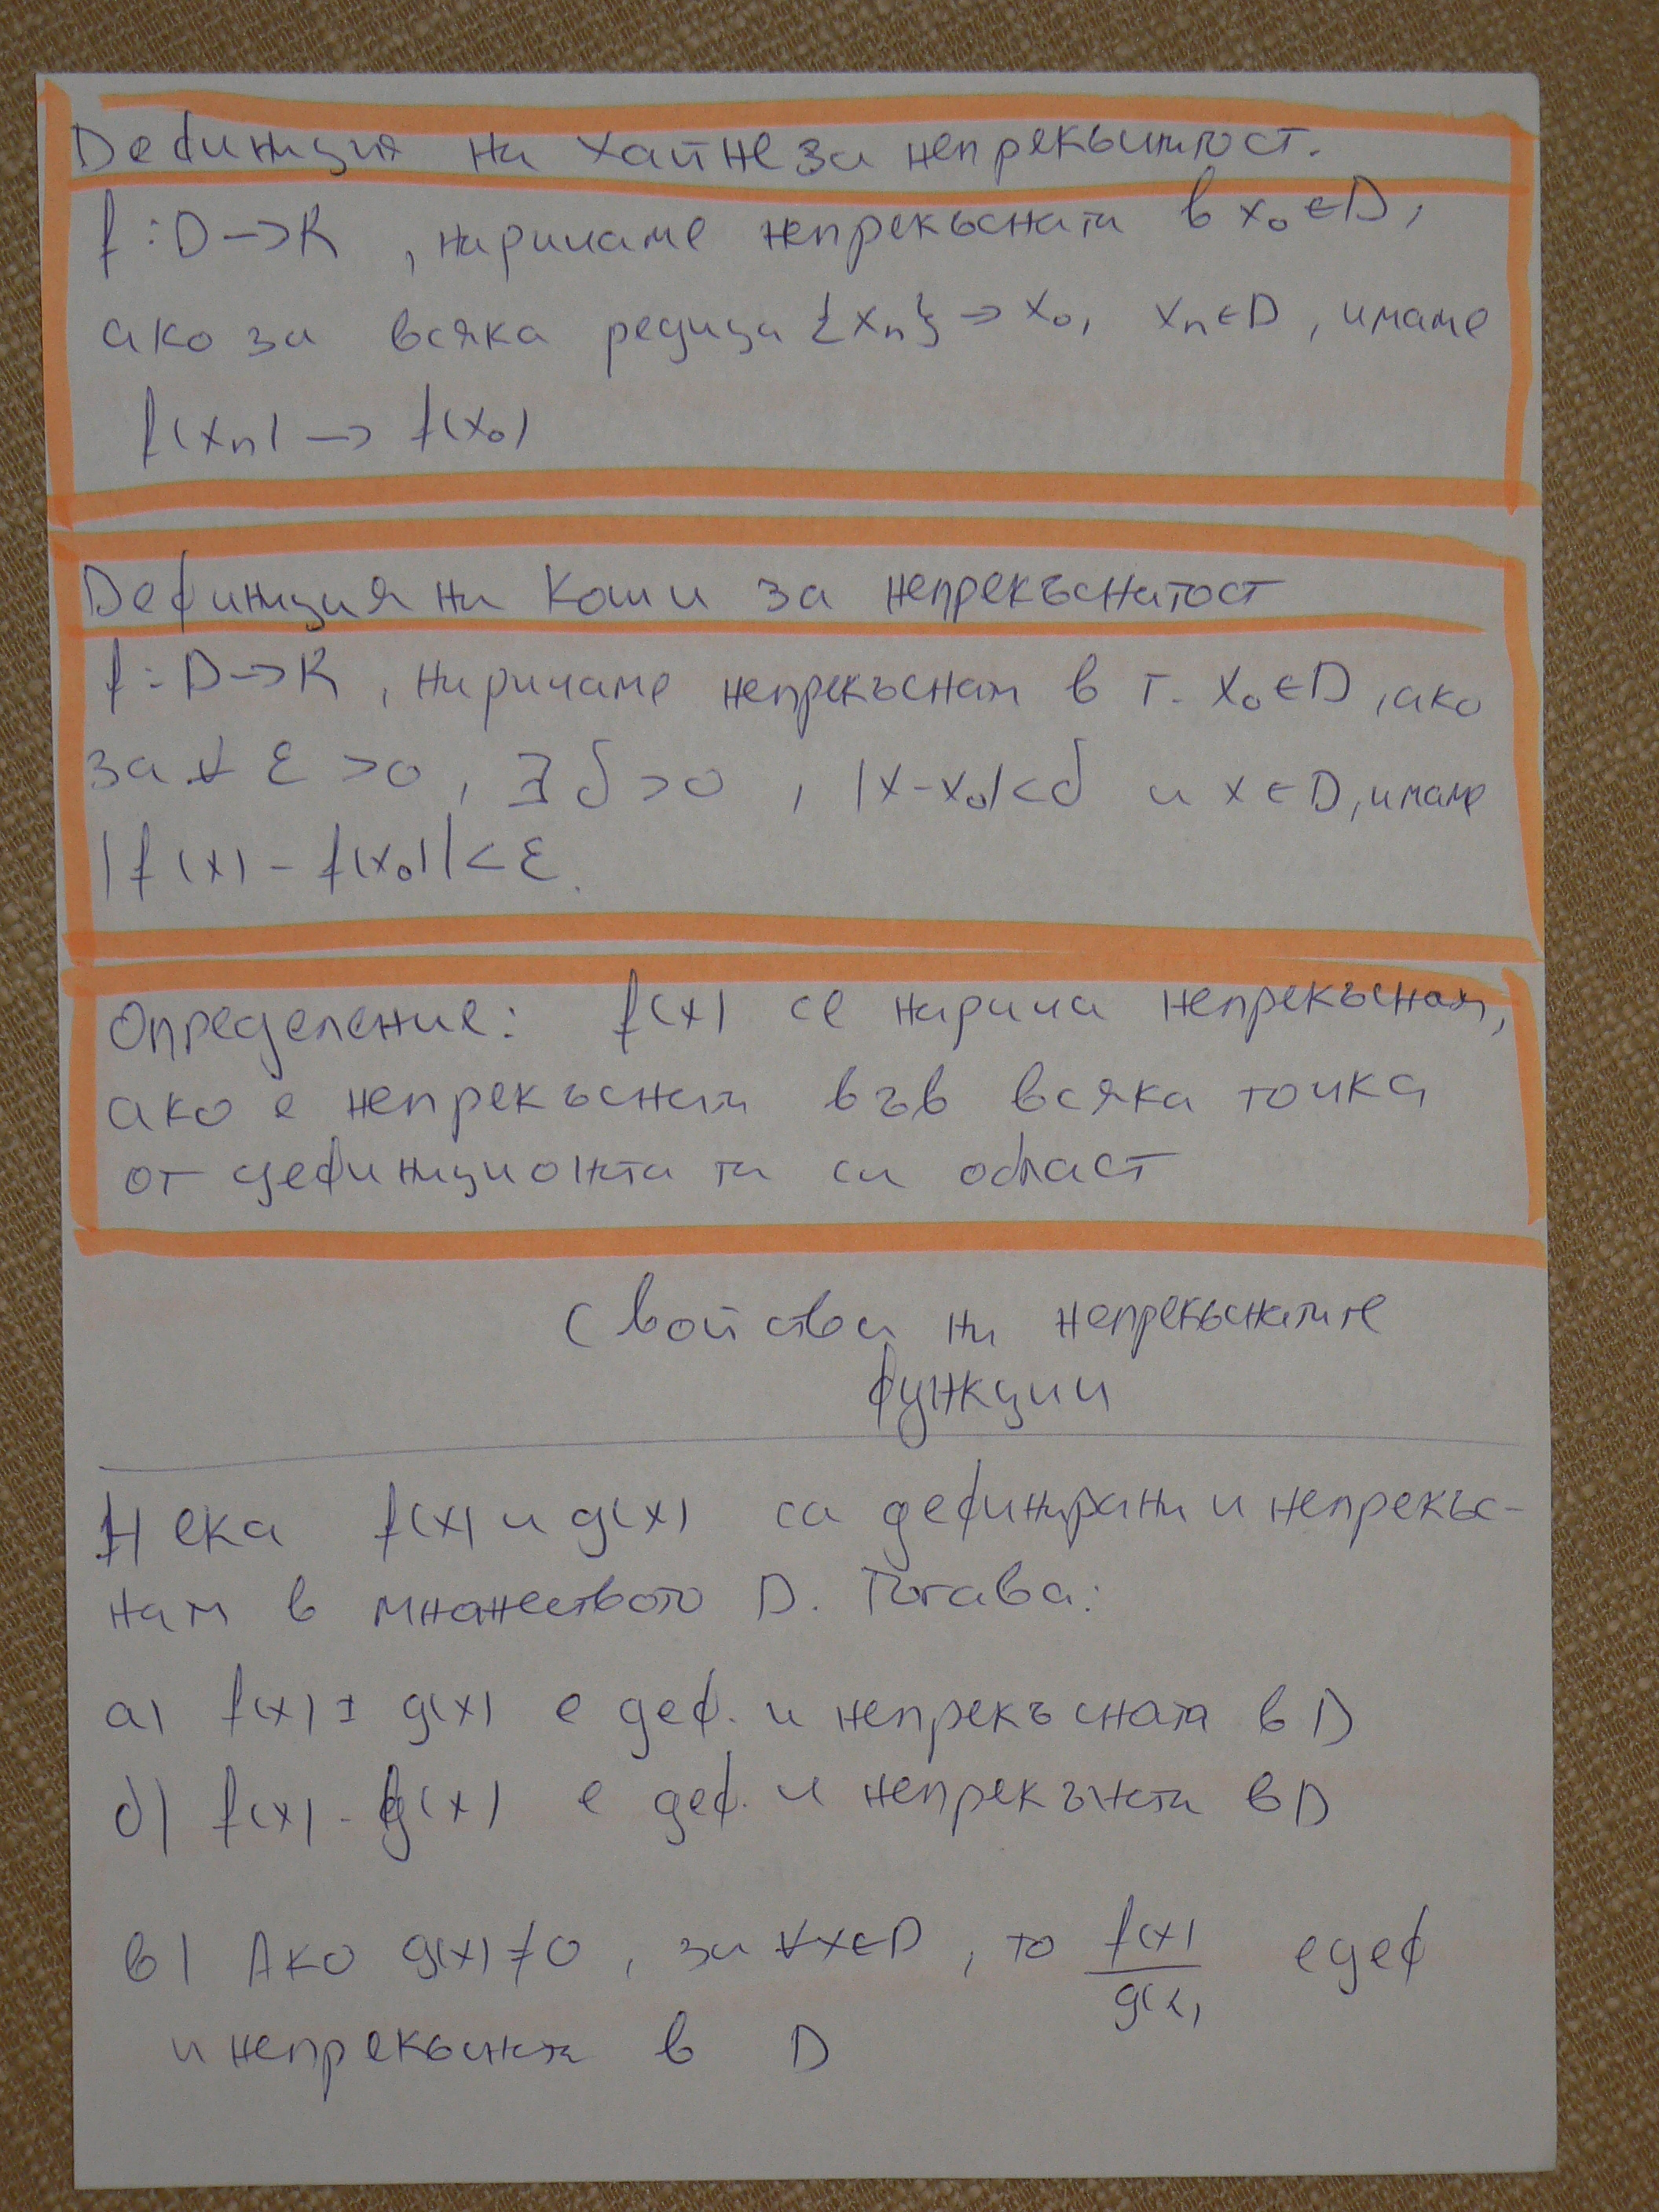 Дефиниция на Хайне за непрекъснатост.
f : D → R , наричаме непрекъсната в x₀ ∈ D,
ако за всяка редица {xₙ} → x₀, xₙ ∈ D , имаме
f(xₙ) → f(x₀)
Дефиниция на Коши за непрекъснатост
f : D → R , наричаме непрекъсната в т. x₀ ∈ D , ако
за ∀ ε > 0 , ∃ δ > 0 , |x - x₀| < δ и x ∈ D, имаме
|f(x) - f(x₀)| < ε.
Определение: f(x) се нарича непрекъсната,
ако е непрекъсната във всяка точка
от дефиниционната си област
Свойства на непрекъснатите
функции
Нека f(x) и g(x) са дефинирани и непрекъс-
нати в множеството D. Тогава:
а) f(x) ± g(x) е деф. и непрекъсната в D
б) f(x) . g(x) е деф. и непрекъсната в D
в) Ако g(x) ≠ 0 , за ∀ x ∈ D , то f(x)/g(x) е деф
и непрекъсната в D